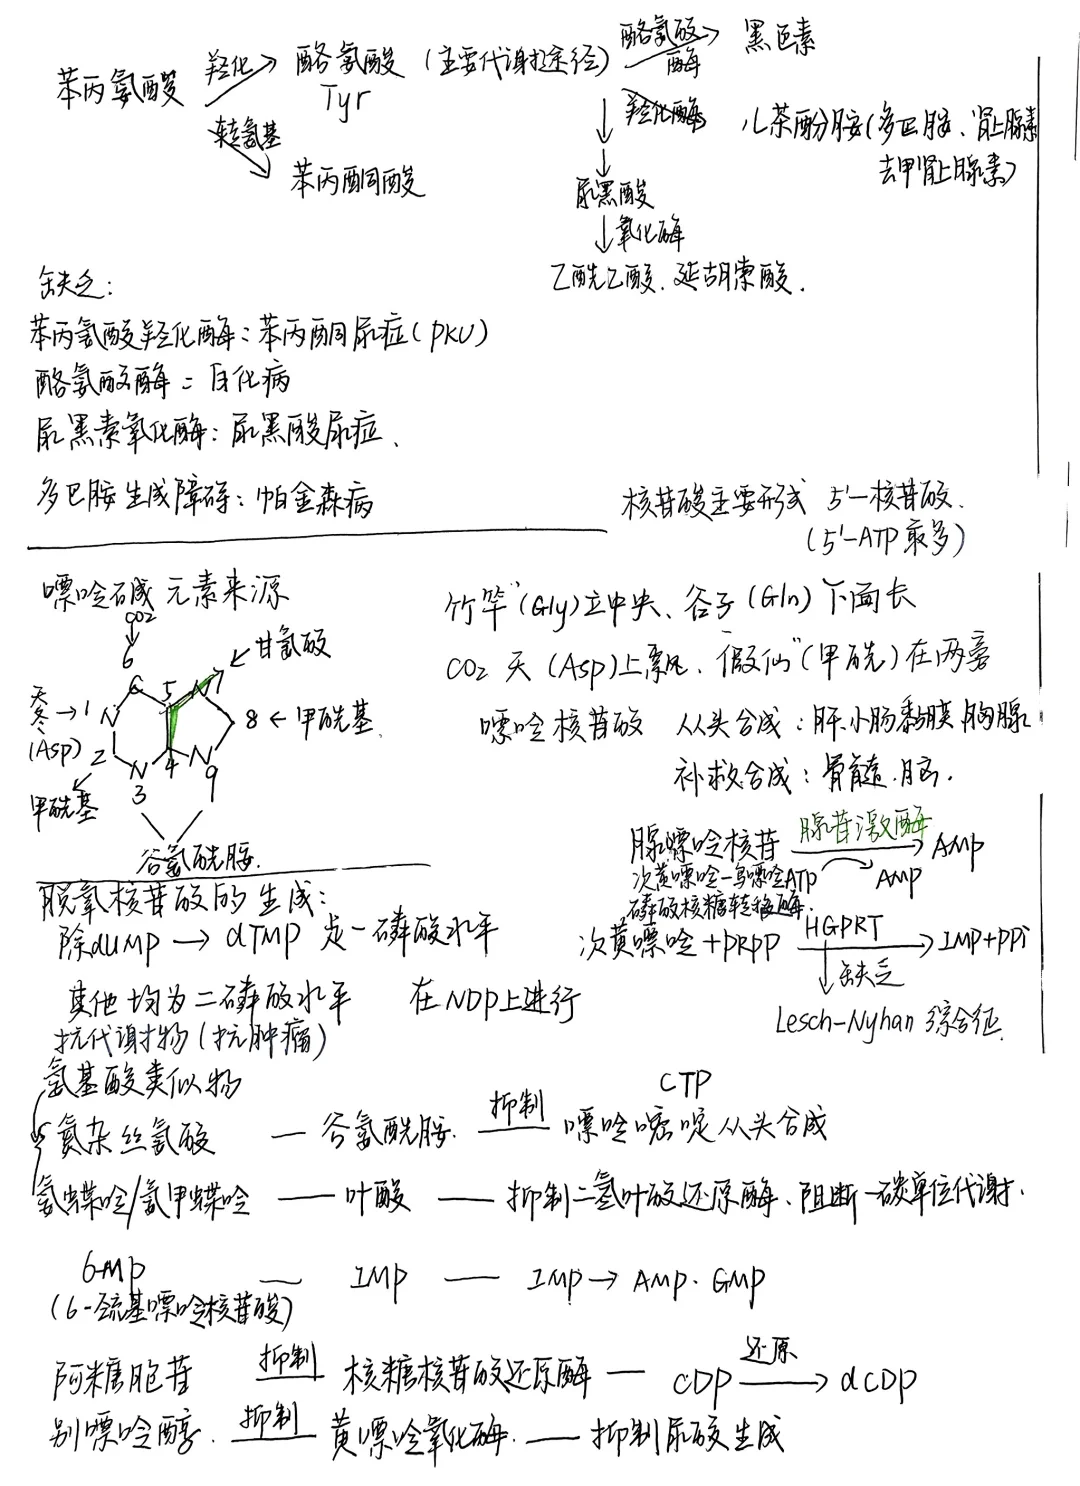 苯丙氨酸 羟化→ 酪氨酸 (主要代谢途径) 酪氨酸酶→ 黑色素
Tyr
转氨基
苯丙酮酸
羟化酶 儿茶酚胺(多巴胺、肾上腺素
去甲肾上腺素)
尿黑酸
↓氧化酶
乙酰乙酸、延胡索酸.
缺乏:
苯丙氨酸羟化酶:苯丙酮尿症(PKU)
酪氨酸酶:白化病
尿黑素氧化酶:尿黑酸尿症、
多巴胺生成障碍:帕金森病
核苷酸主要形式 5'-核苷酸.
(5'-ATP最多)
嘌呤碱 元素来源
CO2
6
C 5 N 7 ←甘氨酸
天冬→1 N
(Asp)
8←甲酰基
2 N 4 N
3 9
甲酰基
谷氨酰胺.
竹竿"(Gly)立中央、谷子(Gln)下面长
CO2 天(Asp)上飘、假仙"(甲酰)在两旁
嘌呤核苷酸 从头合成:肝.小肠黏膜.胸腺
补救合成:骨髓.脑.
腺嘌呤核苷 腺苷激酶→ AMP
ATP AMP
次黄嘌呤-鸟嘌呤
磷酸核糖转移酶.
次黄嘌呤+PRPP HGPRT→IMP+PPi
↓缺乏
Lesch-Nyhan 综合征.
脱氧核苷酸的生成:
除dUMP→dTMP是一磷酸水平
其他均为二磷酸水平 在NDP上进行
抗代谢物(抗肿瘤)
氨基酸类似物
CTP
氮杂丝氨酸 — 谷氨酰胺. 抑制 嘌呤嘧啶从头合成
氨蝶呤/氨甲蝶呤 — 叶酸 — 抑制二氢叶酸还原酶、阻断一碳单位代谢.
6MP — IMP — IMP→AMP.GMP
(6-巯基嘌呤核苷酸)
阿糖胞苷 抑制 核糖核苷酸还原酶 — CDP 还原→ dCDP
别嘌呤醇. 抑制 黄嘌呤氧化酶. — 抑制尿酸生成